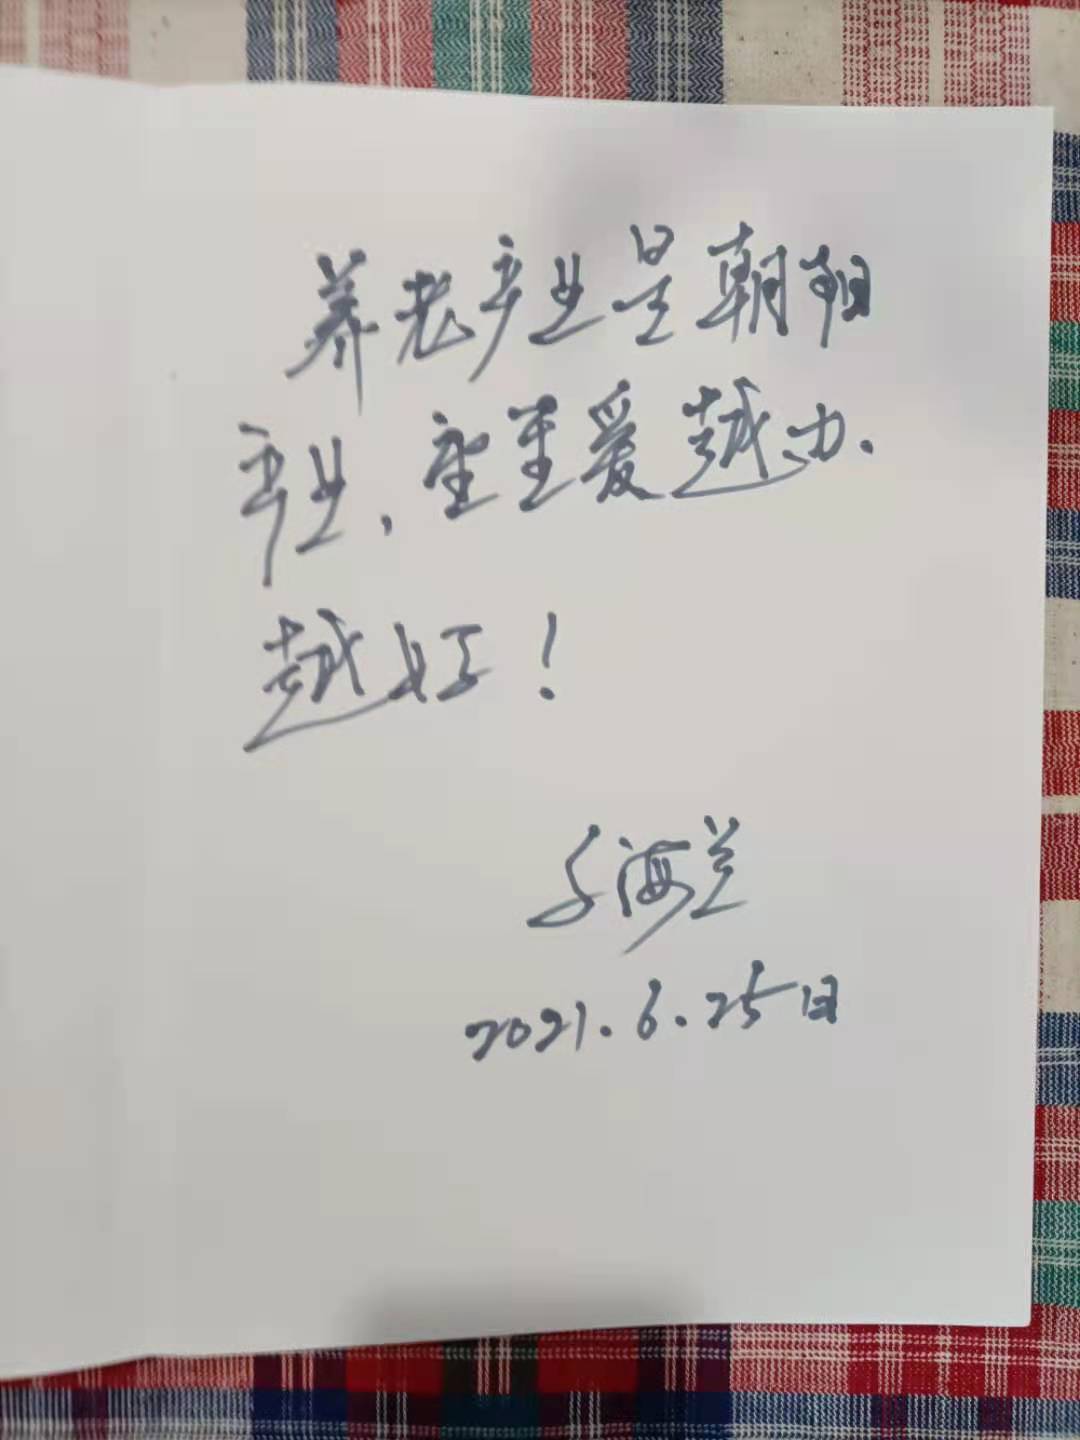 养老产业是朝阳
产业,爱越办
越好!
海兰
2021.6.25日